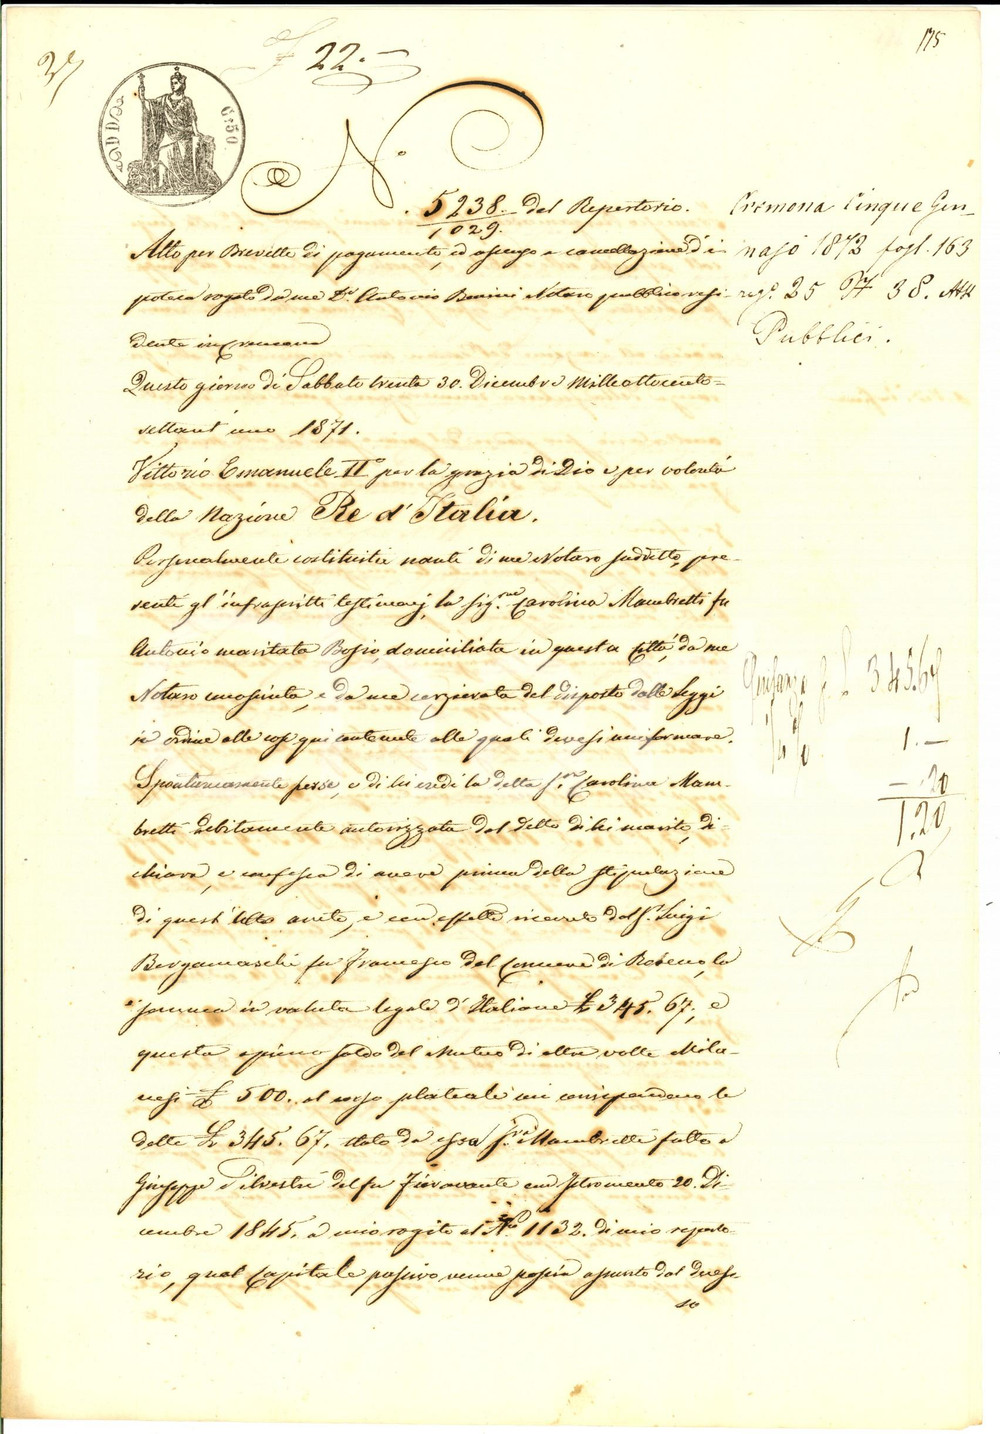 175
22.
C. 50
N.° 5238. del Repertorio.
1029.
Atto per Brevetto di pagamento, ed assenso a cancellazione d'i
poteca rogato da me Dr. Antonio Bonini Notaro pubblico resi
dente in Cremona
Questo giorno di Sabbato trenta 30. Dicembre Mille ottocento-
settant'uno 1871.
Vittorio Emanuele II° per la grazia di Dio e per volontà
della Nazione Re d'Italia.
Personalmente costituita nanti di me Notaro suddetto, pre-
senti gl'infrascritti testimonj, la Sig.ra Carolina Mambretti fu
Antonio maritata Bosio, domiciliata in questa Città, da me
Notaro conosciuta, e da me cerziorata del disposto dalle Leggi
in ordine alle cose qui contenute alle quali devesi uniformare.
Spontaneamente per se, e di lei eredi la detta S.ra Carolina Mam-
bretti debitamente autorizzata dal detto di lei marito, di-
chiara, e confessa di avere prima della stipulazione
di quest'atto avuto, e con effetto ricevuto dal S.r Luigi
Bergamaschi fu Francesco del Comune di
la
somma in valuta legale d'Italiane £ 345. 67, e
questa a pieno saldo del Mutuo di altre volte Mila-
nesi £ 500. al corso plateale cui corrispondono le
dette £ 345. 67. stato da essa S.ra Mambretti fatto a
Giuseppe Silvestri del fu Fioravante con Istromento 20. Di-
cembre 1845. a mio rogito al N.° 1132. di mio reperto-
rio, qual Capitale passivo venne poscia assunto dal dues-
so
Cremona Cinque Gen-
najo 1872 fogl. 163
reg.° 25 N° 38. Atti
Pubblici.
Quitanza £ 345.67
1.—
—.20
1.20